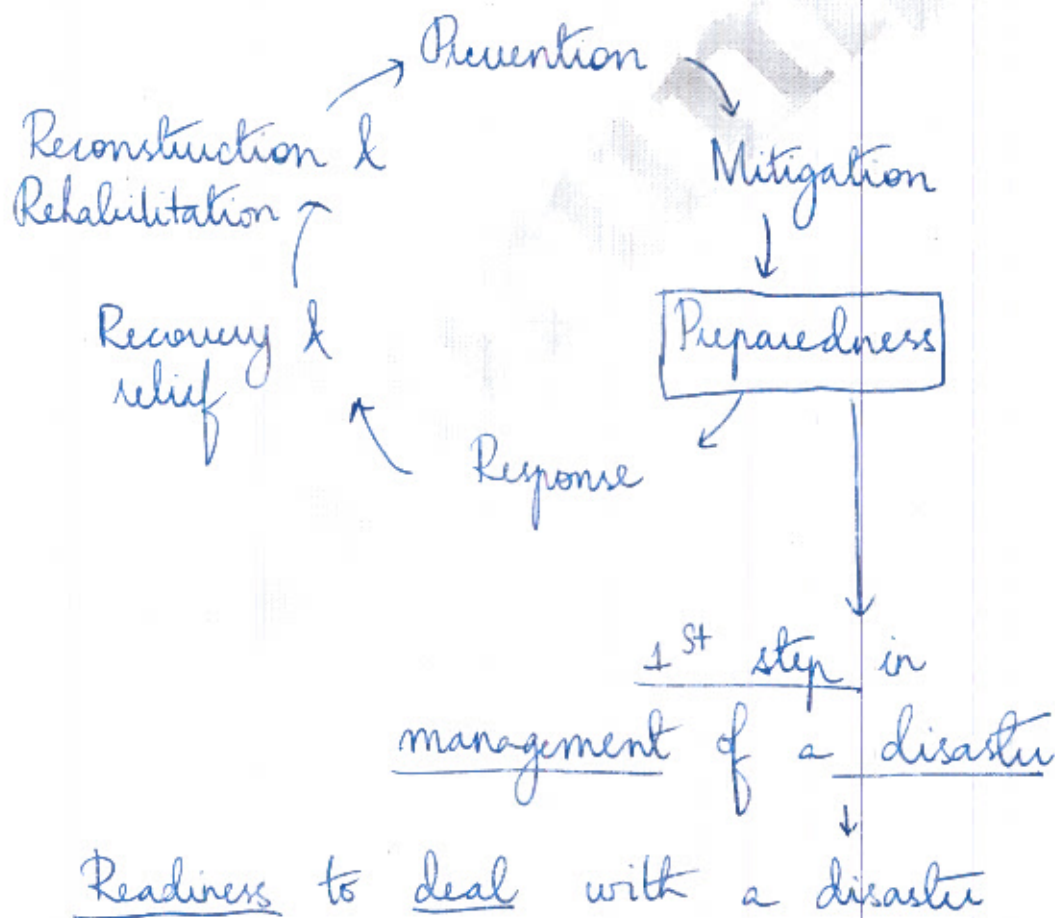 Prevention
Reconstruction &
Rehabilitation
Mitigation
Recovery &
relief
Preparedness
Response
1st step in
management of a disaster
Readiness to deal with a disaster